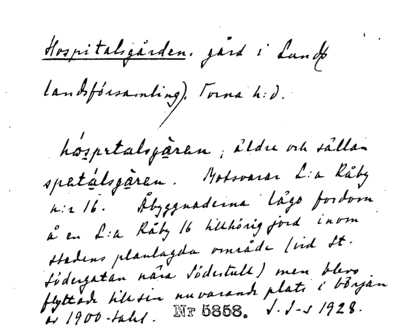 Hospitalsgården, gård i Lunds
landsförsamling), Torna h:d.
hóspetalsgåren, äldre och sällan
spetálsgåren. Motsvarar L:a Råby
n:r 16. Åbyggnaderna lågo fordom
å en L:a Råby 16 tillhörig jord inom
stadens planlagda område (vid St.
Södergatan nära Södertull) men blevo
flyttade till sin nuvarande plats i början
av 1900-talet. Nr 5858. S. I-s 1928.